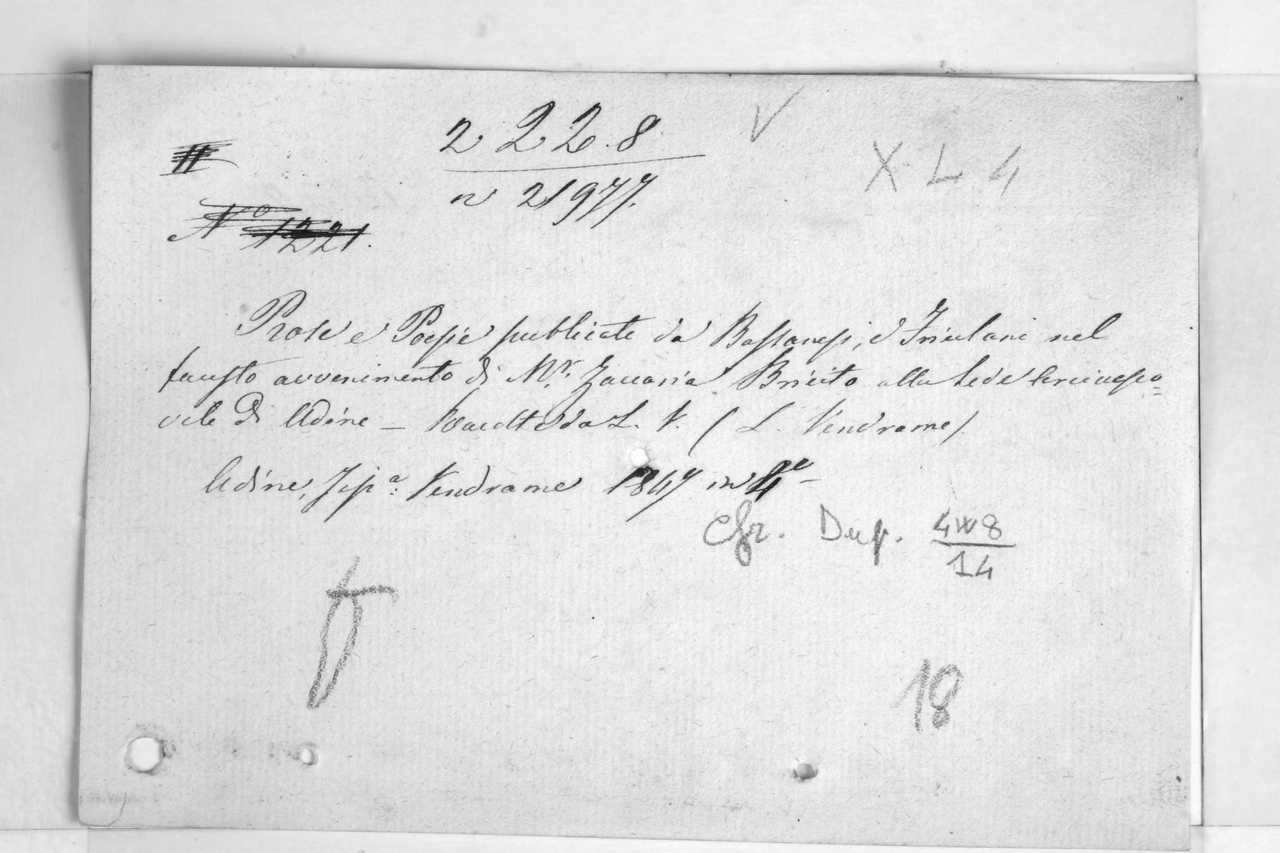 2 2 2. 8.
V
X L 4
n 21977.
No 1221.
Prose e Poesie publicate da Bassanesi, e Friulani nel
fausto avvenimento di Mr. Zaccaria Bricito alla Sede Arcivesco=
vile di Udine — Raccolte da L. V. (L. Vendrame)
Udine, Tipa: Vendrame 1847 in 4o —
Cfr. Dup. 4W8
14
18